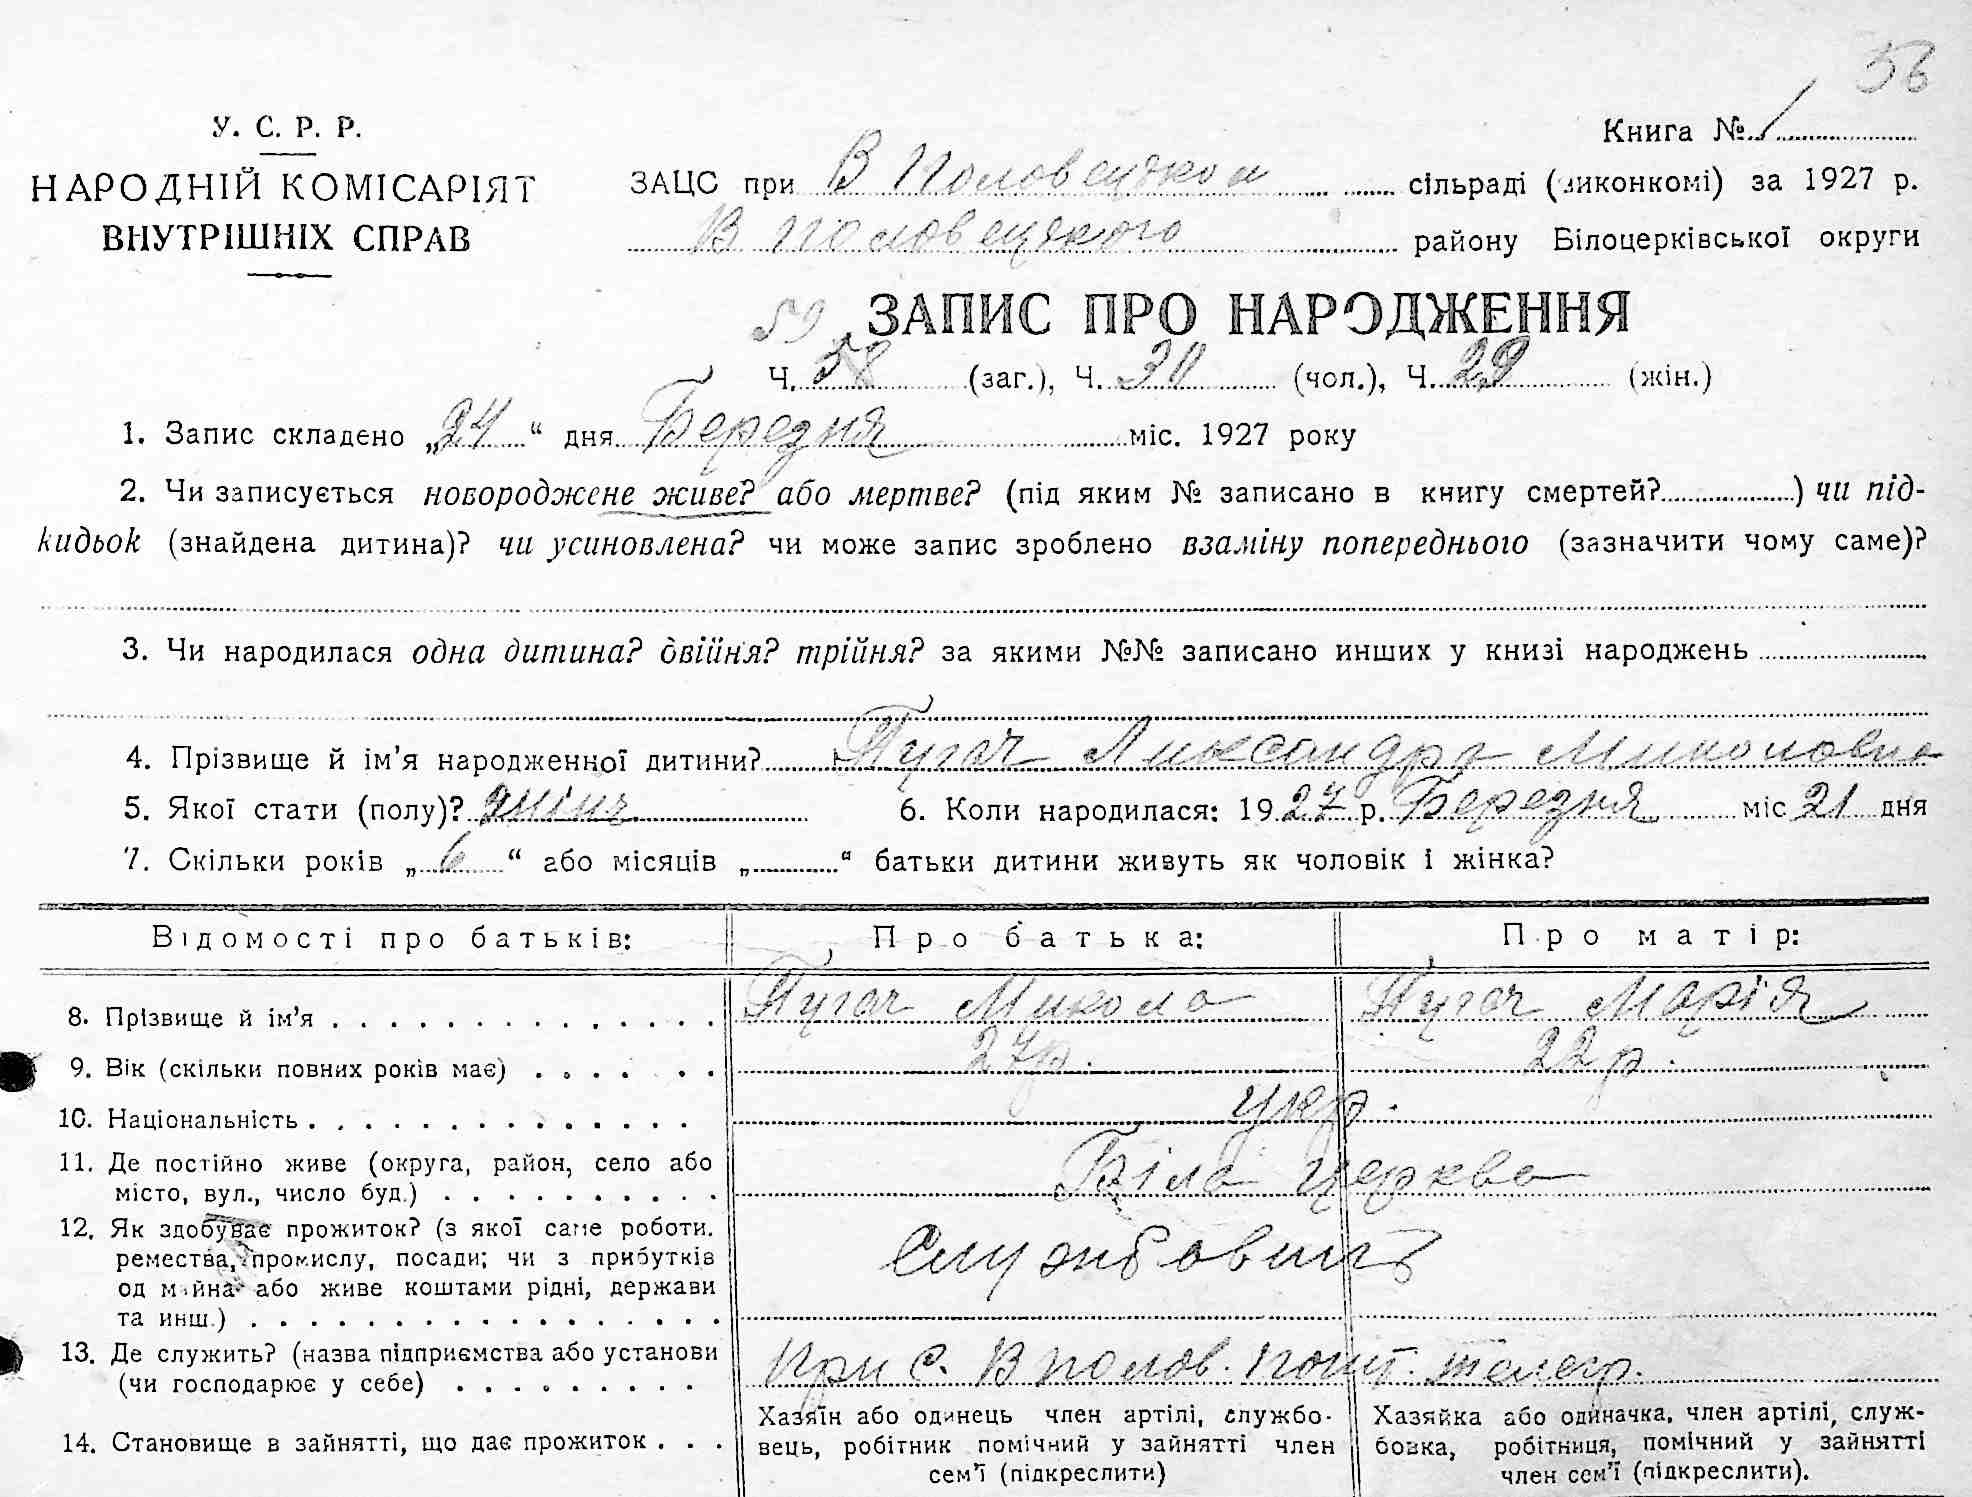 56
У. С. Р. Р.
НАРОДНІЙ КОМІСАРІЯТ
ВНУТРІШНІХ СПРАВ
Книга № 1
ЗАЦС при В Половецькои сільраді (виконкомі) за 1927 р.
В Половецького району Білоцерківської округи
59 ЗАПИС ПРО НАРОДЖЕННЯ
Ч. 58 (заг.), Ч. 30 (чол.), Ч. 29 (жін.)
1. Запис складено „24“ дня Березня міс. 1927 року
2. Чи записується новороджене живе? або мертве? (під яким № записано в книгу смертей?) чи під-
кидьок (знайдена дитина)? чи усиновлена? чи може запис зроблено взаміну попереднього (зазначити чому саме)?
3. Чи народилася одна дитина? двійня? трійня? за якими №№ записано инших у книзі народжень
4. Прізвище й ім’я народженної дитини? Пугач Ликсандра Миколовна
5. Якої стати (полу)? жіноч 6. Коли народилася: 1927 р. Березня міс 21 дня
7. Скільки років „6“ або місяців „ “ батьки дитини живуть як чоловік і жінка?
Відомості про батьків: Про батька: Про матір:
8. Прізвище й ім’я Пугач Микола Пугач Марія
9. Вік (скільки повних років має) 27р. 22р.
10. Національність укр.
11. Де постійно живе (округа, район, село або
місто, вул., число буд.) Біла Церква
12. Як здобуває прожиток? (з якої саме роботи.
ремества, промислу, посади; чи з прибутків Службовиць
од майна або живе коштами рідні, держави
та инш.)
13. Де служить? (назва підприємства або установи
(чи господарює у себе) При С. В полов. пошт. телегр.
14. Становище в зайнятті, що дає прожиток
Хазяїн або одинець член артілі, службо-
вець, робітник помічний у зайнятті член
сем’ї (підкреслити)
Хазяйка або одиначка, член артілі, служ-
бовка, робітниця, помічний у зайнятті
член сем’ї (підкреслити).